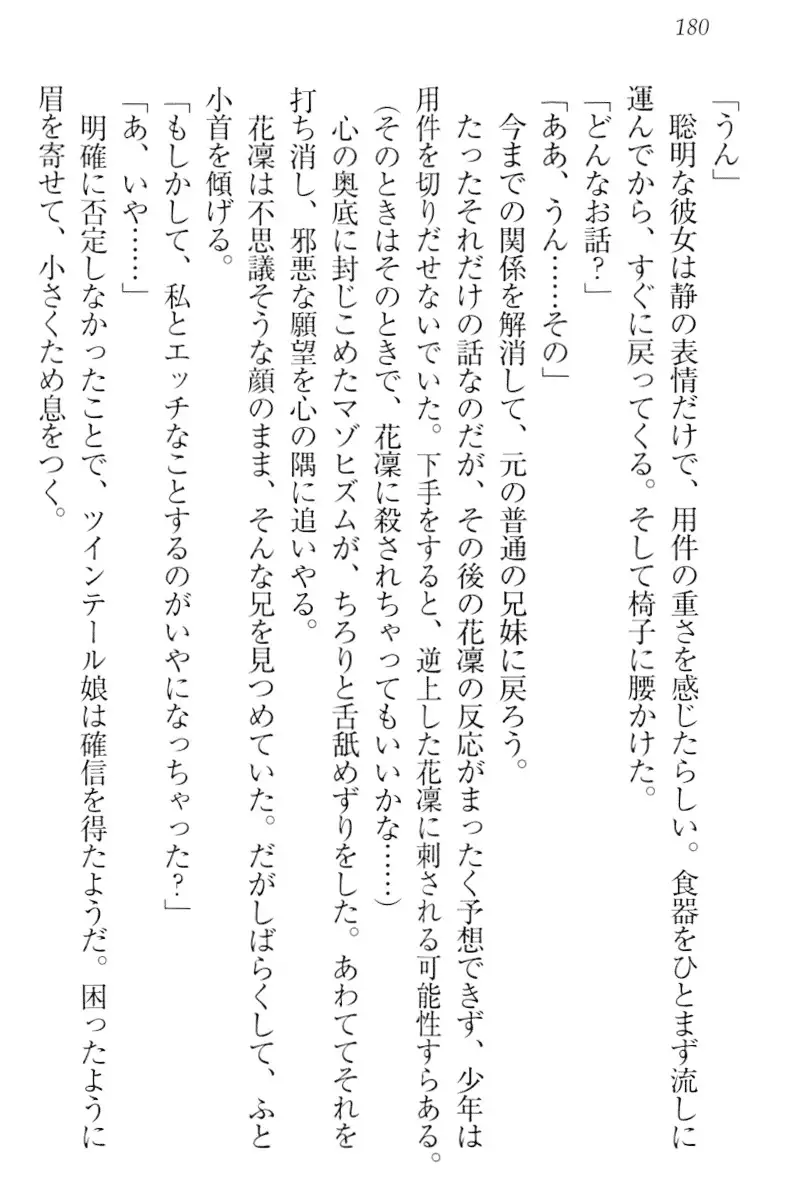 180
「うん」
聡明な彼女は静の表情だけで、用件の重さを感じたらしい。食器をひとまず流しに
運んでから、すぐに戻ってくる。そして椅子に腰かけた。
「どんなお話？」
「ああ、うん……その」
今までの関係を解消して、元の普通の兄妹に戻ろう。
たったそれだけの話なのだが、その後の花凜の反応がまったく予想できず、少年は
用件を切りだせないでいた。下手をすると、逆上した花凜に刺される可能性すらある。
(そのときはそのときで、花凜に殺されちゃってもいいかな……)
心の奥底に封じこめたマゾヒズムが、ちろりと舌舐めずりをした。あわててそれを
打ち消し、邪悪な願望を心の隅に追いやる。
花凜は不思議そうな顔のまま、そんな兄を見つめていた。だがしばらくして、ふと
小首を傾げる。
「もしかして、私とエッチなことするのがいやになっちゃった？」
「あ、いや……」
明確に否定しなかったことで、ツインテール娘は確信を得たようだ。困ったように
眉を寄せて、小さくため息をつく。